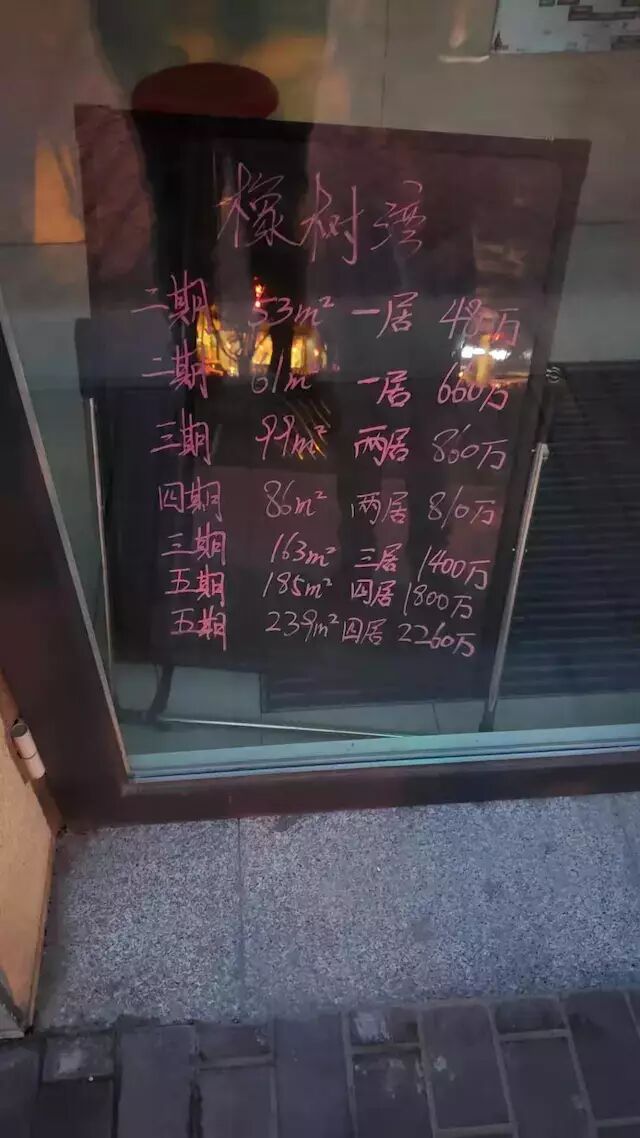 橡树湾
二期 53m² 一居 480万
二期 61m² 一居 660万
三期 99m² 两居 860万
四期 86m² 两居 810万
三期 163m² 三居 1400万
五期 185m² 四居 1800万
五期 239m² 四居 2260万